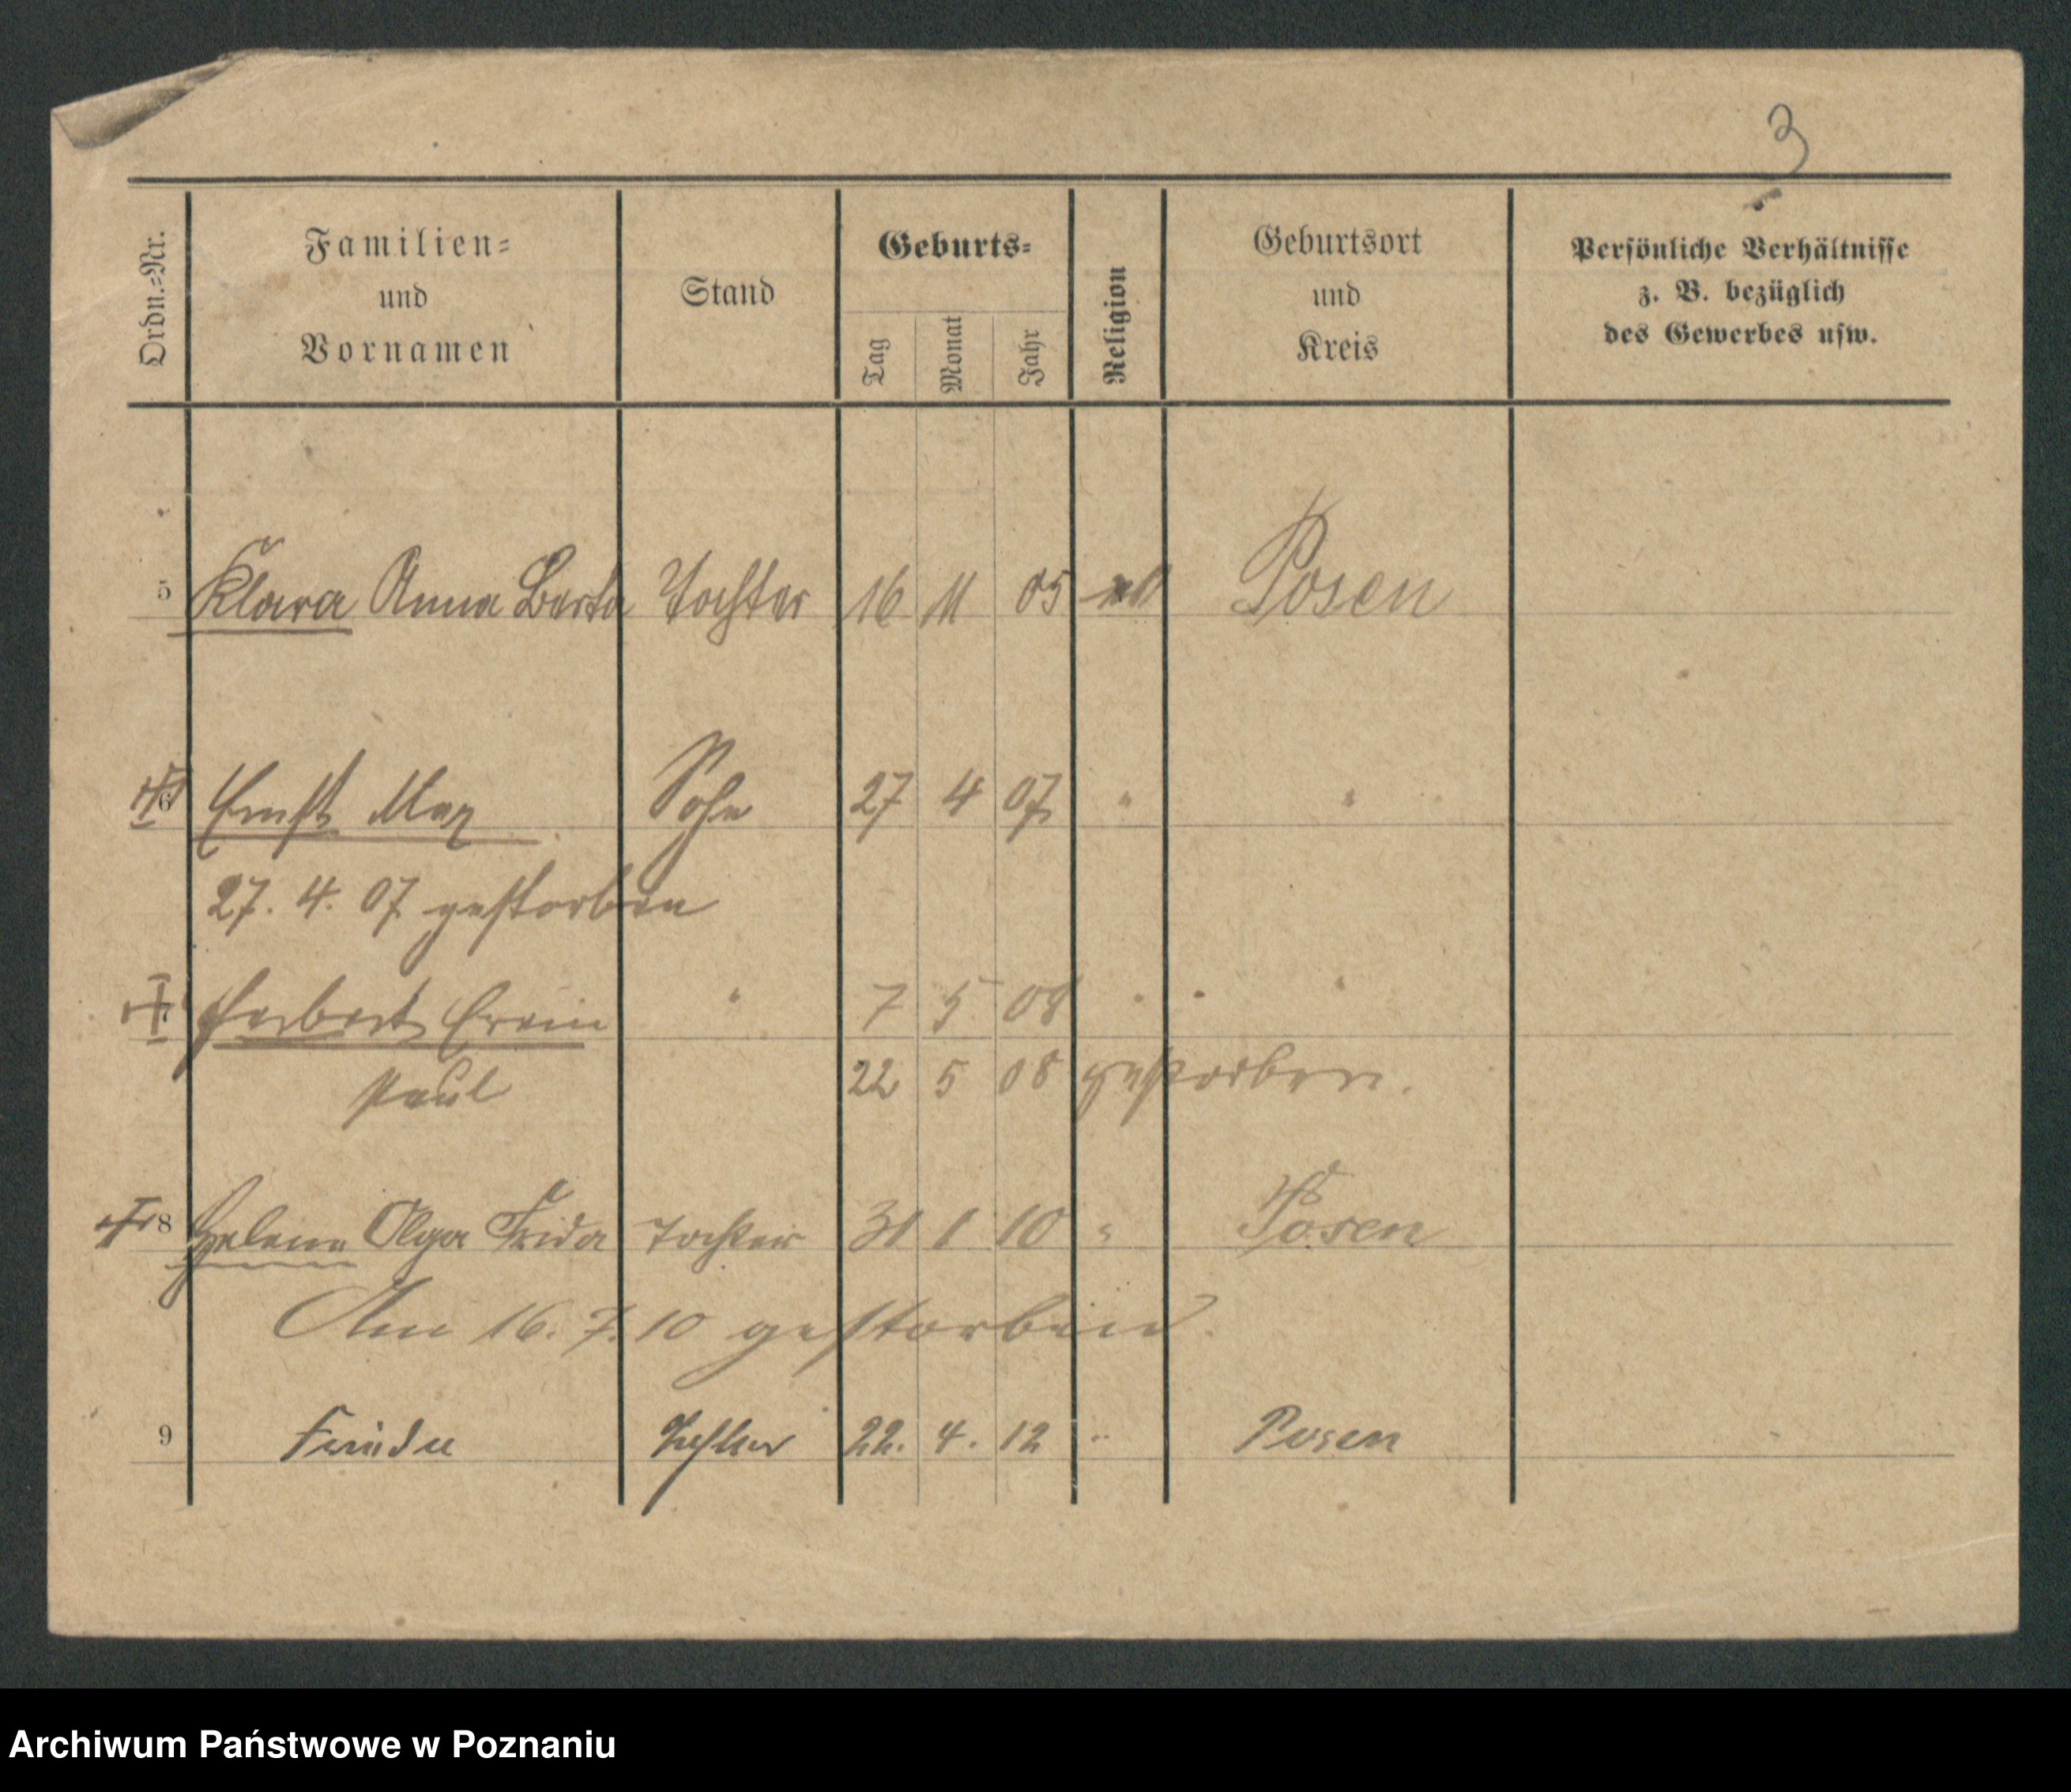 3
Ordn.-Nr.
Familien-
und
Vornamen
Stand
Geburts-
Tag
Monat
Jahr
Religion
Geburtsort
und
Kreis
Persönliche Verhältnisse
z. B. bezüglich
des Gewerbes usw.
5 Klara Anna Berta Tochter 16 11 05 Posen
6 Ernst Max Sohn 27 4 07 " "
27. 4. 07 gestorben
Herbert Erwin " 7 5 08 " "
Paul 22 5 08 gestorben.
8 Helene Olga Frida Tochter 31 1 10 " Posen
Am 16. 7. 10 gestorben.
9 Tochter 22. 4. 12 " Posen
Archiwum Państwowe w Poznaniu